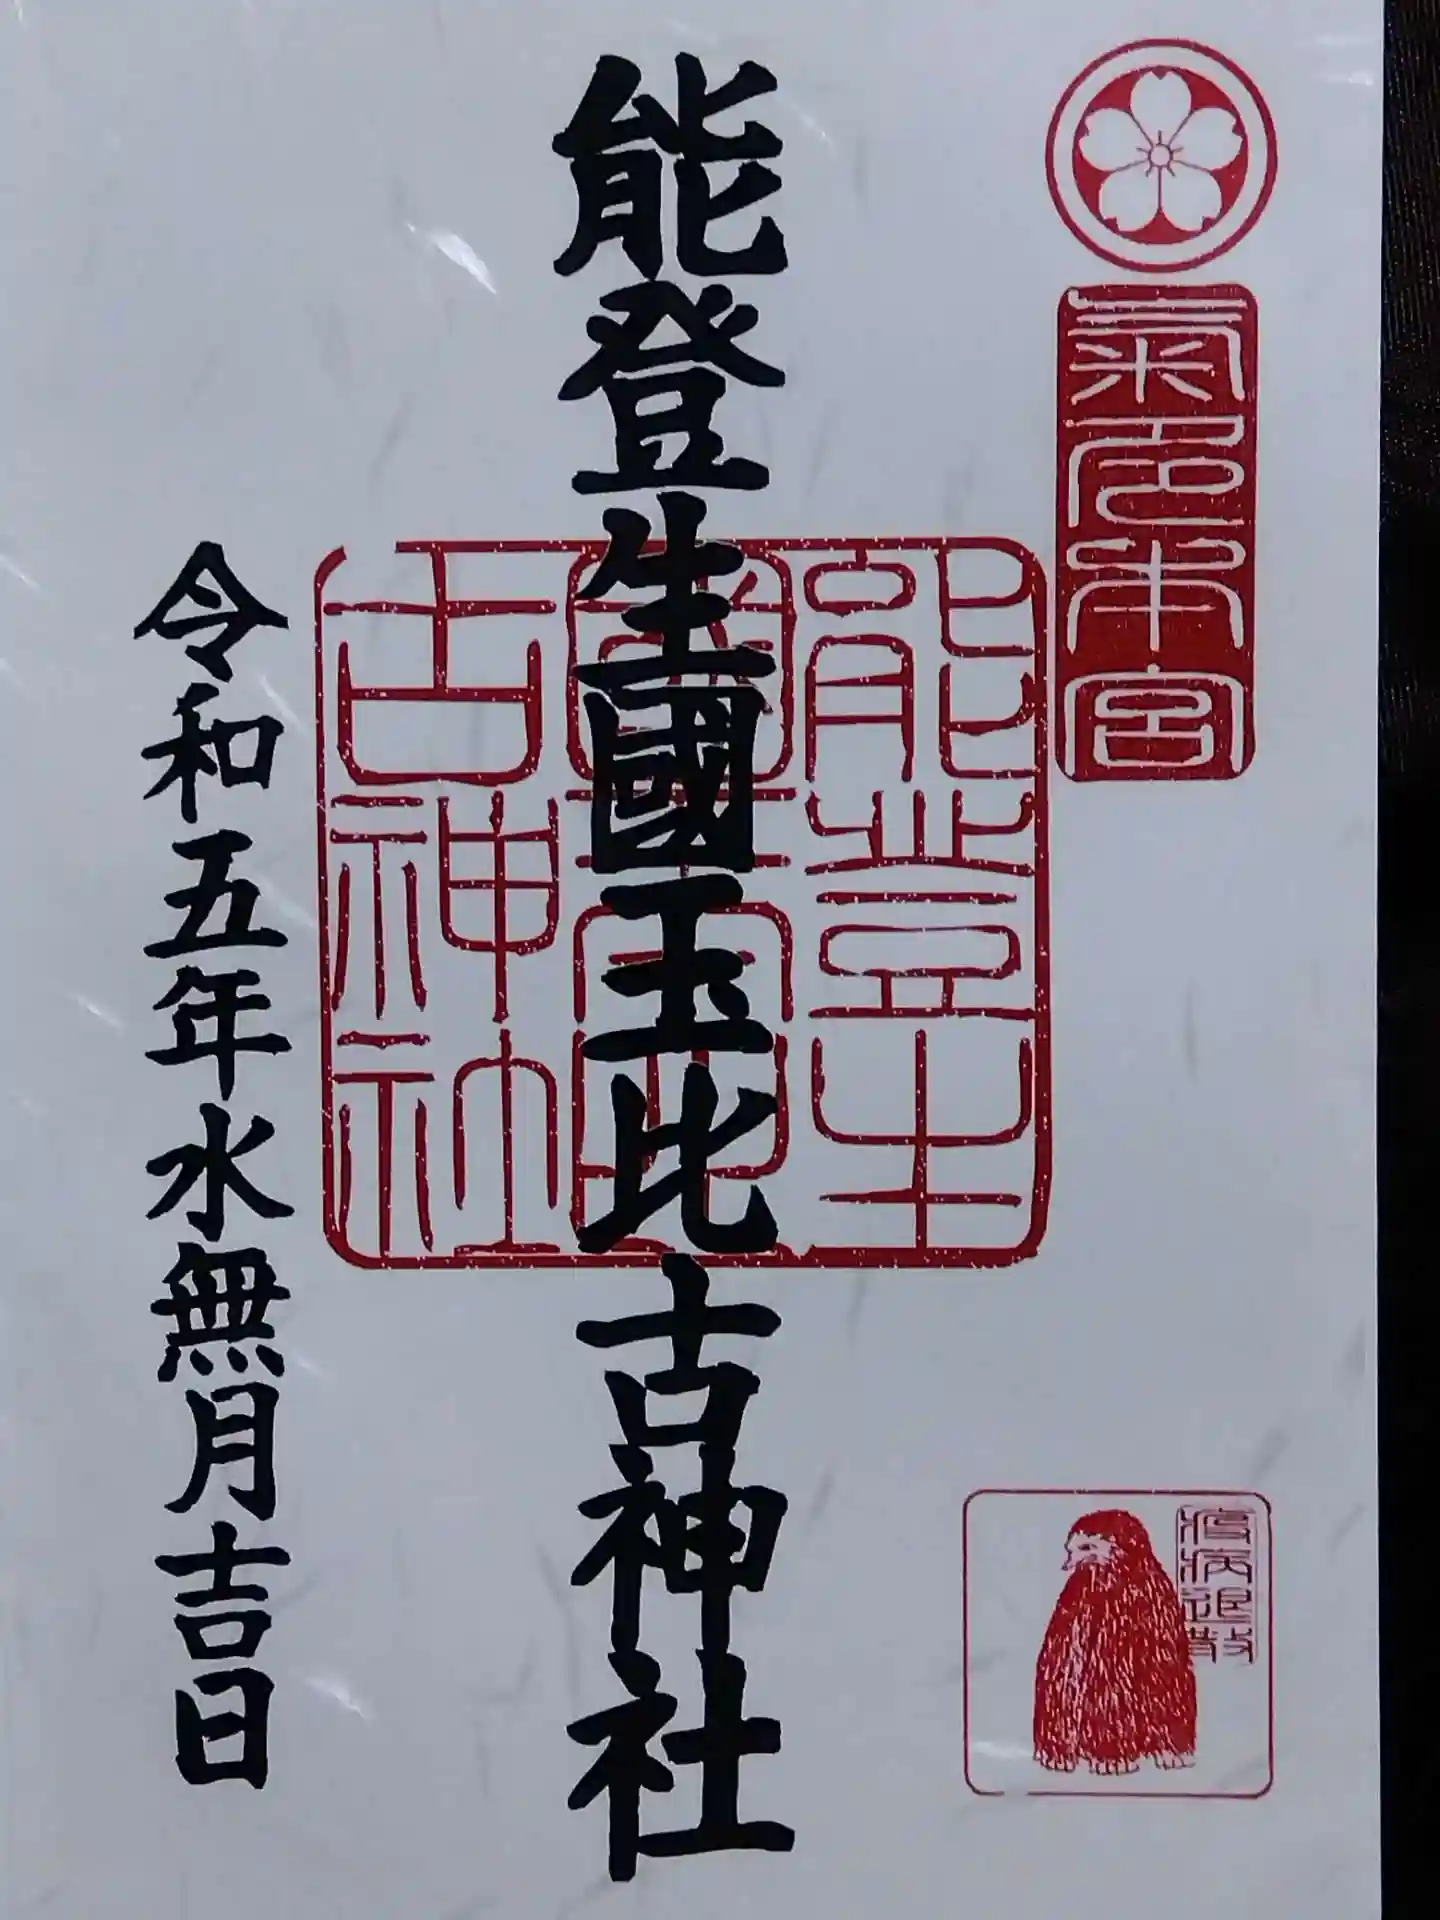 氣多本宮
疫病退散
能登生國玉比古神社
能登生
國玉比
古神社
令和五年水無月吉日